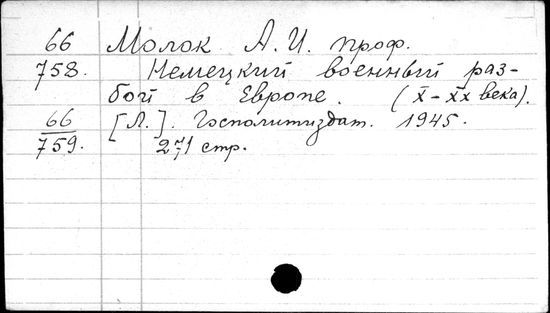 66 Молок А.И. проф.
758. Немецкий военный раз-
бой в Европе. (X-XX века).
66 [Л.]. Госполитиздат. 1945.
759. 271 стр.